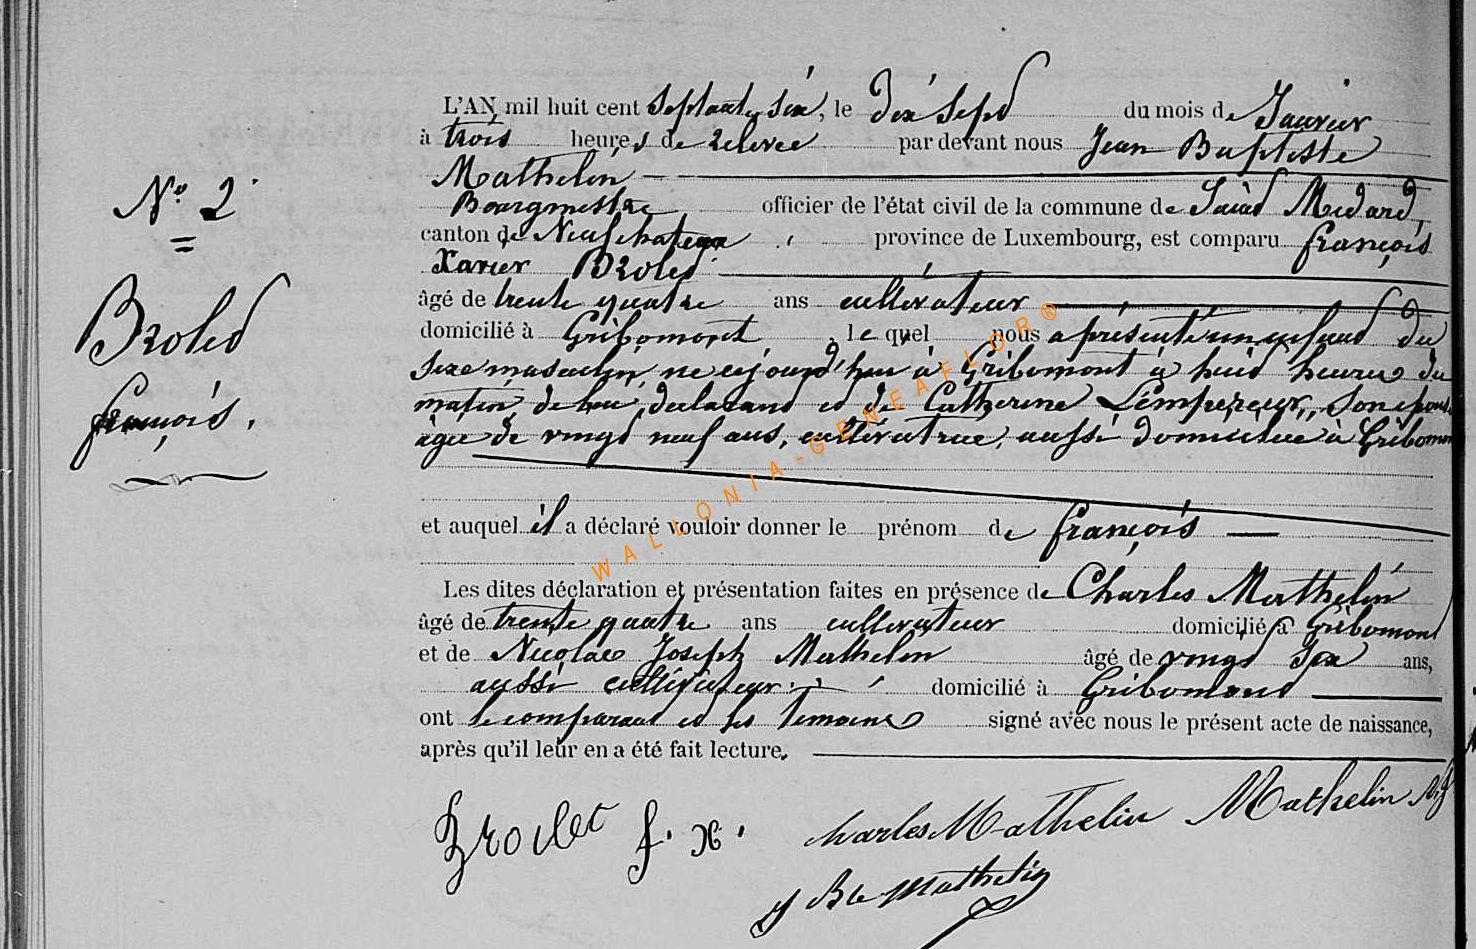 N° 2
Brolet
françois.
L'AN mil huit cent septante six, le dix sept du mois de Janvier
à trois heures de relevée par devant nous Jean Baptiste
Mathelin
Bourgmestre officier de l'état civil de la commune de Saint Médard,
canton de Neufchateau province de Luxembourg, est comparu françois
Xavier Brolet
âgé de trente quatre ans cultivateur
domicilié à Gribomont, lequel nous a présenté un enfant du
sexe masculin, né cejourd'hui à Gribomont à huit heures du
matin, de lui, déclarant et de Catherine Lempereur, son épouse
âgée de vingt neuf ans, cultivatrice, aussi domiciliée à Gribomont
et auquel il a déclaré vouloir donner le prénom de françois
Les dites déclaration et présentation faites en présence de Charles Mathelin
âgé de trente quatre ans cultivateur domicilié à Gribomont
et de Nicolas Joseph Mathelin âgé de vingt six ans,
aussi cultivateur domicilié à Gribomont
ont le comparant et les témoins signé avec nous le présent acte de naissance,
après qu'il leur en a été fait lecture.
Brolet f. x. charles Mathelin Mathelin NJ
J Bte Mathelin
WALLONIA-GENEAFLOR®